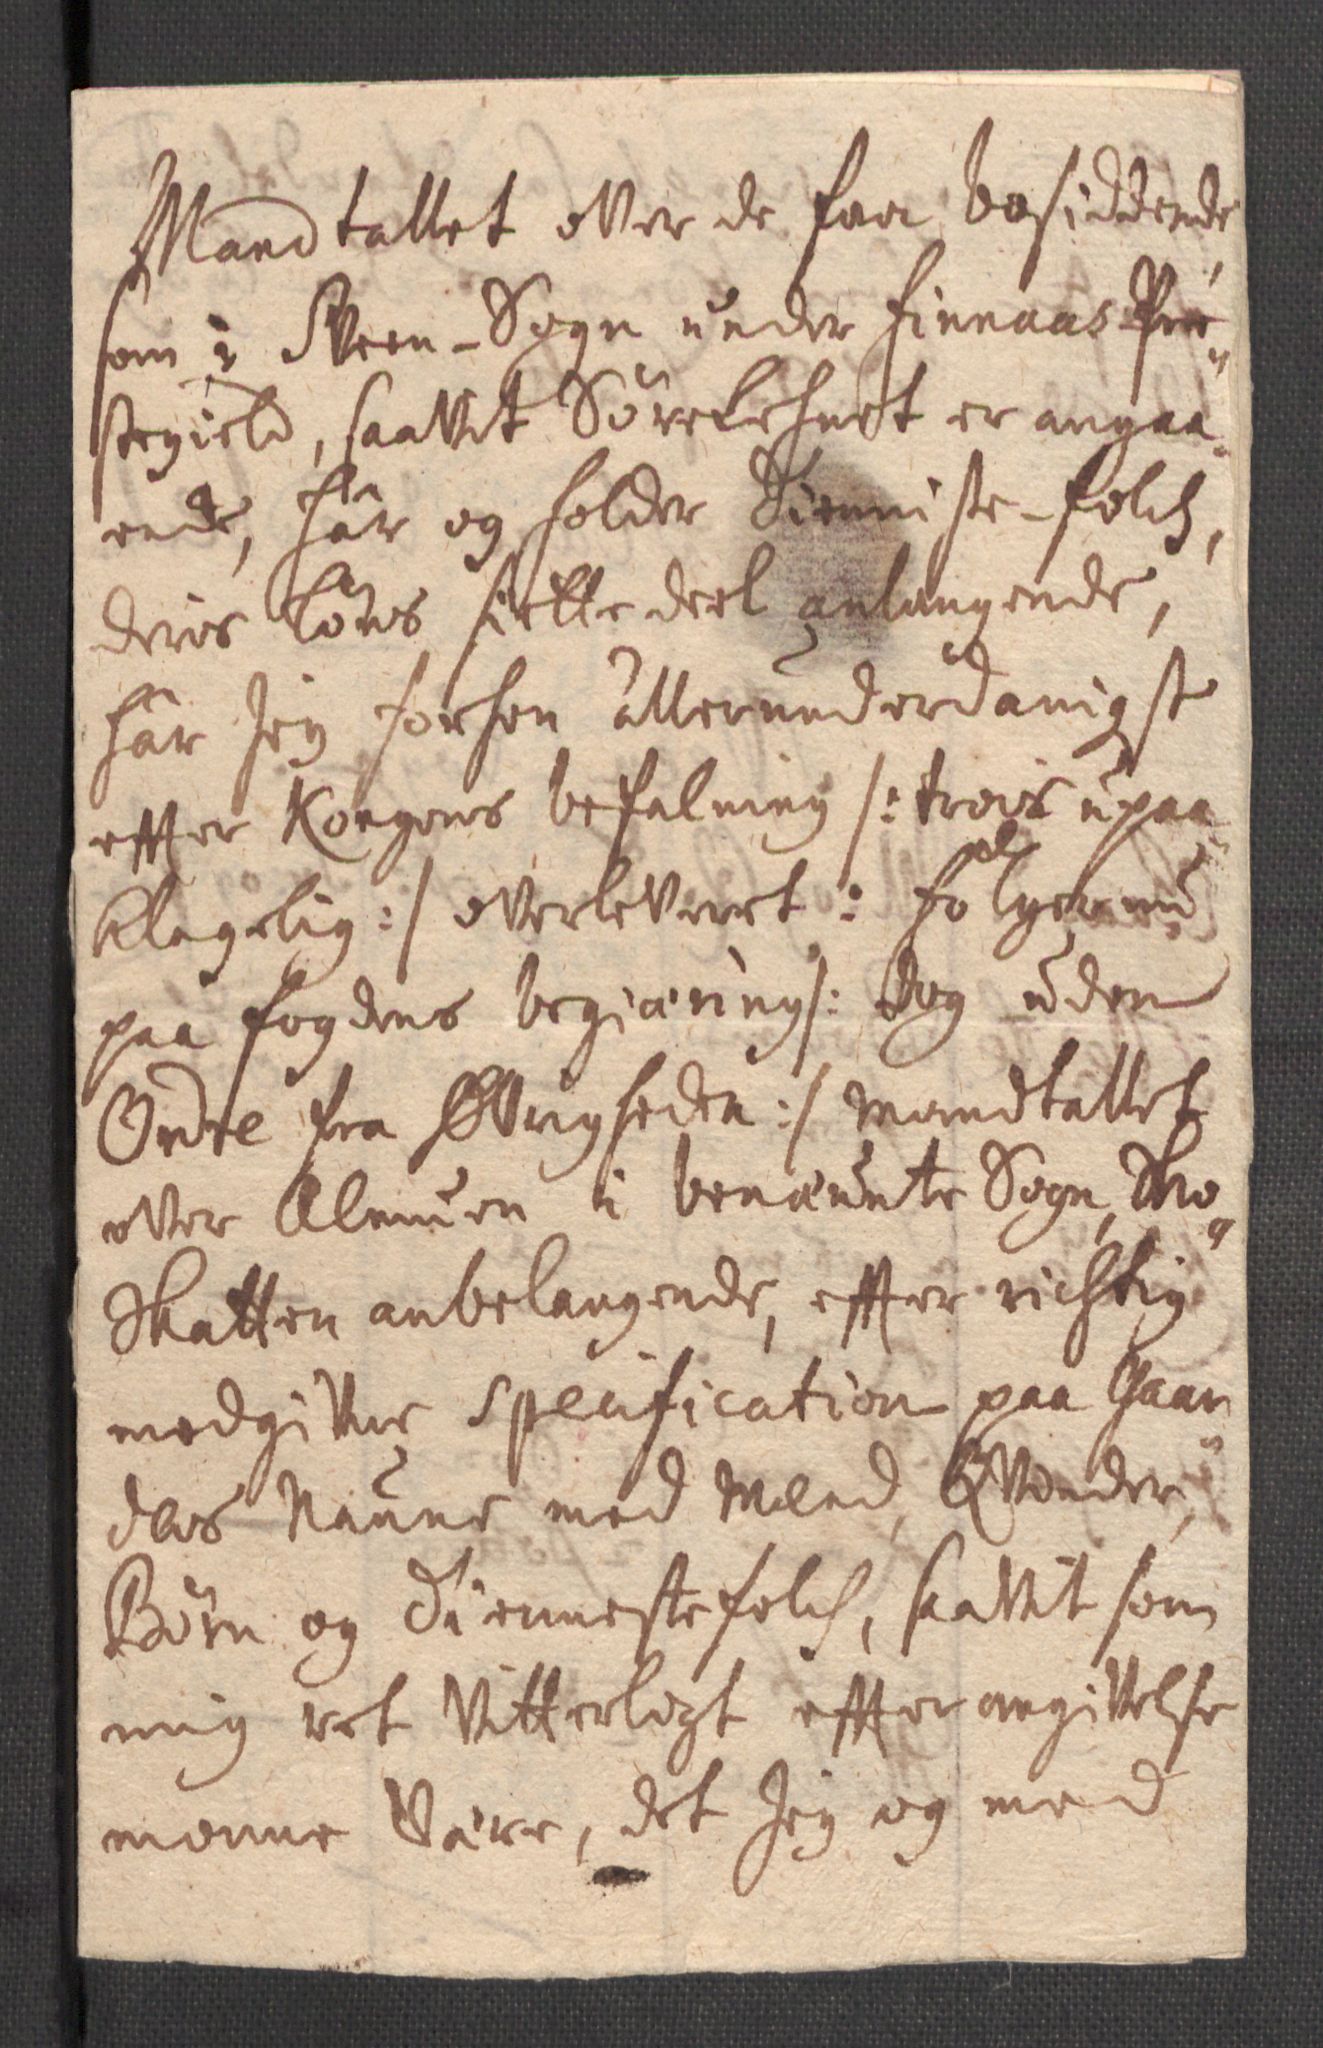 Mandtallet over de faa bosiddende,
som i Sveen-Sogn under Finnaas Præ„
stegield, saavit Sörelehnet er angaa„
ende, hâr og holder Tienniste-folch,
deris löns siette deel anlangende,
hâr Jeg forhen allerunderdanigst
effter Kongens befalning /: trois upaa„
klagelig :/ overlevert : Fölger nu
paa fogdens begiæring /: dog uden
Ordre fra Øvrigheden :/ Mandtallet
over Almuen i benæunte Sogn, Sko„
Skatten anbelangende, effter richtig
medgivne Specification paa Gaar„
dens Naune med Mænd, Qvinder,
Börn og Tiennestefolch, saavit som
mig ret vitterligt effter angivelse
monne Være, det Jeg og med